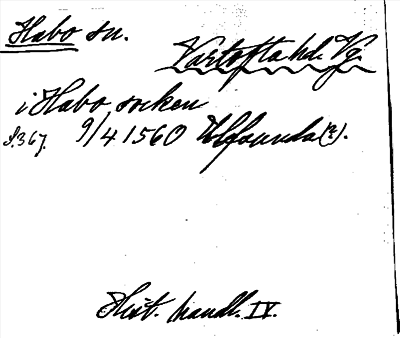 Habo sn.
Vartofta hd. Vg.
i Habo socken
S.367. 9/4 1560 Ulfsunda(?).
Hist. handl. IV.